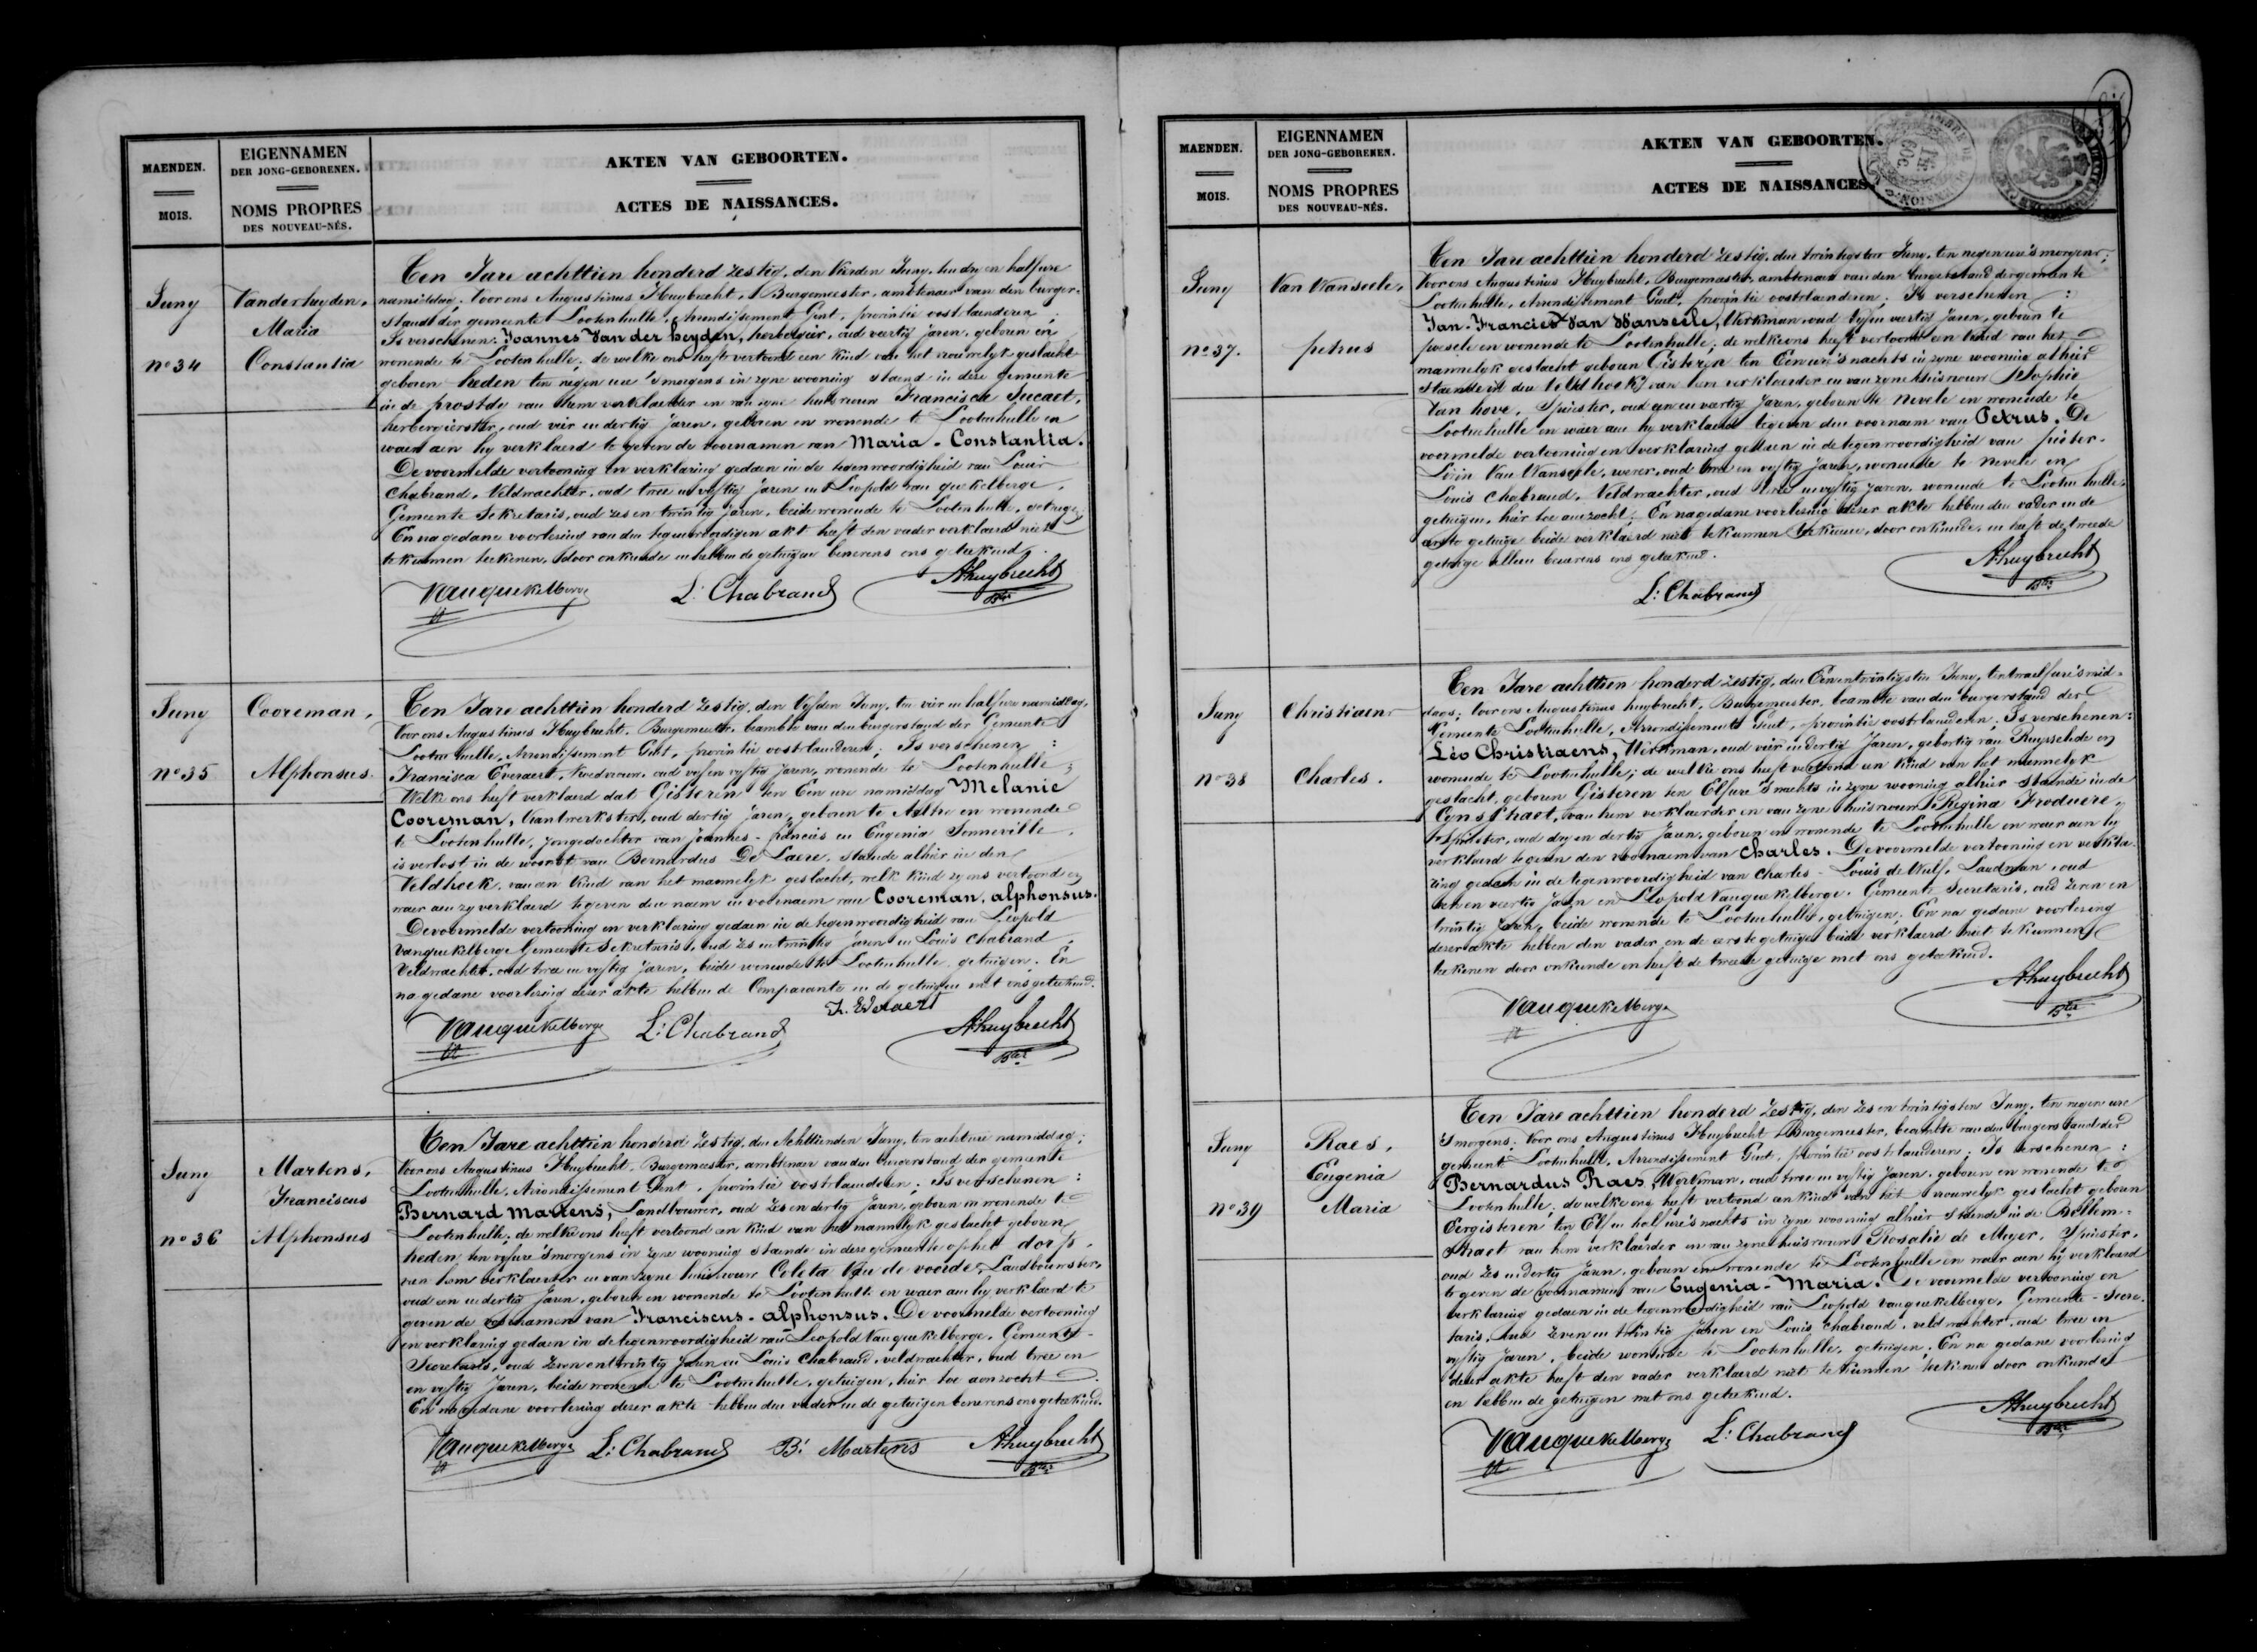 MAENDEN.
MOIS.
EIGENNAMEN
DER JONG-GEBORENEN.
NOMS PROPRES
DES NOUVEAU-NÉS.
AKTEN VAN GEBOORTEN.
ACTES DE NAISSANCES.
Juny
Vanderheyden,
Maria
Constantia
nº 34
Ten Jare achttien honderd zestig, den Vierden Juny, ten dry en half ure
namiddag. Voor ons Augustinus Huybrecht, Burgemeester, ambtenaer van den burger-
stand der gemeente Lootenhulle, Arrondissement Gent, provintie oostvlaenderen
Is verschenen: Joannes Van der heyden, herbergier, oud veertig jaren, geboren en
wonende te Lootenhulle; de welke ons heeft vertoond een kind van het vrouwelyk geslacht
geboren heden ten negen ure 'smorgens in zyne wooning staende in deze gemeente
in de prostdy van hem verklaerder en van zyne huisvrouw Francisca
herbergierster, oud vier en dertig Jaren, geboren en wonende te Lootenhulle en
waer aen hy verklaerd te geven de voornamen van Maria-Constantia.
De voormelde vertooning en verklaring gedaen in de tegenwoordigheid van Louis
Chabrand, Veldwachter, oud twee en vyftig Jaren en Leopold van quekelberge,
Gemeente Sekretaris, oud zes en twintig Jaren, beide wonende te Lootenhulle, getuigen;
En na gedane voorlezing van den tegenwoordigen akt heeft den vader verklaerd niet
te kunnen teekenen, door onkunde en hebben de getuigen benevens ons geteekend.
Vanquekelberge L: Chabrand AHuybrecht
Bter
Juny
Cooreman,
nº 35
Alphonsus.
Ten Jare achttien honderd zestig, den Vyfden Juny, ten vier en half ure namiddag,
Voor ons Augustinus Huybrecht, Burgemeester, beambte van den burgerstand der Gemeente
Lootenhulle, Arrondissement Gent, provintie oostvlaenderen; Is verschenen :
Francisca Everaert, Vroedvrouw, oud vyf en vyftig Jaren, wonende te Lootenhulle;
Welke ons heeft verklaerd dat Gisteren ten Een ure namiddag Melanie
Cooreman, kantwerkster, oud dertig Jaren, geboren te Aeltre en wonende
te Lootenhulle, Jongedochter van Joannes-francies en Eugenia Senneville,
is verlost in de woonst van Bernardus De Laere, staende alhier in den
Veldhoek, van een kind van het mannelyk geslacht, welk kind zy ons vertoond en
waer aen zy verklaerd te geven den naem en voornaem van Cooreman, alphonsus.
De voormelde vertooning en verklaring gedaen in de tegenwoordigheid van Leopold
Vanquekelberge Gemeente Sekretaris, oud zes en twintig Jaren en Louis Chabrand,
Veldwachter, oud twee en vyftig Jaren, beide wonende te Lootenhulle, getuigen. En
na gedane voorlezing dezer akte hebben de Comparante en de getuigen met ons geteekend.
F. Everaert
Vanquekelberge L: Chabrand AHuybrecht
Bter
Juny
Martens,
Franciscus
nº 36
Alphonsus
Ten Jare achttien honderd zestig, den Achttienden Juny, ten acht ure namiddag;
Voor ons Augustinus Huybrecht, Burgemeester, ambtenaer van den burgerstand der gemeente
Lootenhulle, Arrondissement Gent, provintie oostvlaenderen; Is verschenen :
Bernard Martens, Landbouwer, oud zes en dertig Jaren, geboren en wonende te
Lootenhulle; de welke ons heeft vertoond een kind van het mannelyk geslacht geboren
heden ten vyf ure 'smorgens in zyne wooning staende in deze gemeente op het dorp,
van hem verklaerder en van zyne huisvrouw Coleta Van de voorde, Landbouwster,
oud een en dertig Jaren, geboren en wonende te Lootenhulle en waer aen hy verklaerd te
geven de voornamen van Franciscus-alphonsus. De voormelde vertooning
en verklaring gedaen in de tegenwoordigheid van Leopold Vanquekelberge, Gemeente-
Secretaris, oud zeven en twintig Jaren en Louis Chabrand, veldwachter, oud twee en
en vyftig Jaren, beide wonende te Lootenhulle, getuigen, hier toe aenzocht.
En na gedane voorlezing dezer akte hebben den vader en de getuigen benevens ons geteekend.
Vanquekelberge L: Chabrand B: Martens AHuybrecht
Bter
MAENDEN.
MOIS.
EIGENNAMEN
DER JONG-GEBORENEN.
NOMS PROPRES
DES NOUVEAU-NÉS.
AKTEN VAN GEBOORTEN.
ACTES DE NAISSANCES.
Juny
Van Wanseele,
nº 37.
petrus
Ten Jare achttien honderd zestig, den twintigsten Juny, ten negen ure 'smorgens;
Voor ons Augustinus Huybrecht, Burgemeester, ambtenaer van den burgerstand der gemeente
Lootenhulle, Arrondissement Gent, provintie oostvlaenderen. Is verschenen :
Jan-Francies Van Wanseele, Werkman, oud vyf en veertig Jaren, geboren te
poesele en wonende te Lootenhulle; de welke ons heeft vertoond een kind van het
mannelyk geslacht geboren Gisteren ten Een ure 'snachts in zyne wooning alhier
staende in den Veldhoek, van hem verklaerder en van zyne huisvrouw Sophie
Van hove, Spinster, oud een en veertig Jaren, geboren te Nevele en wonende te
Lootenhulle en waer aen hy verklaerd te geven den voornaem van Petrus. De
voormelde vertooning en verklaring gedaen in de tegenwoordigheid van pieter-
Livin Van Wanseele, wever, oud twee en vyftig Jaren, wonende te Nevele en
Louis Chabrand, Veldwachter, oud twee en vyftig Jaren, wonende te Lootenhulle,
getuigen, hier toe aenzocht; En na gedane voorlezing dezer akte hebben den vader en de
eerste getuige beide verklaerd niet te kunnen teekenen, door onkunde, en heeft de tweede
getuige alleen benevens ons geteekend.
L: Chabrand AHuybrecht
Bter
Juny
Christiaens
nº 38
Charles.
Ten Jare achttien honderd zestig, den Een en twintigsten Juny, ten twaelf ure 'smid-
dags; Voor ons Augustinus huybrecht, Burgemeester, beambte van den burgerstand der
Gemeente Lootenhulle, Arrondissement Gent, provintie oostvlaenderen; Is verschenen:
Léo Christiaens, Werkman, oud vier en dertig Jaren, geboortig van Ruysselede en
wonende te Lootenhulle; de welke ons heeft vertoond een kind van het mannelyk
geslacht, geboren Gisteren ten Elf ure 'snachts in zyne wooning alhier staende in de
van hem verklaerder en van zyne huisvrouw Regina
Spinster, oud dry en dertig Jaren, geboren en wonende te Lootenhulle en waer aen hy
verklaerd te geven den voornaem van Charles. De voormelde vertooning en verkla-
ring gedaen in de tegenwoordigheid van Charles-Louis de Wulf, Landman, oud
en veertig Jaren en Leopold Vanquekelberge, Gemeente Secretaris, oud zeven en
twintig Jaren, beide wonende te Lootenhulle, getuigen; En na gedane voorlezing
dezer akte hebben den vader en de eerste getuige beide verklaerd niet te kunnen
teekenen door onkunde en heeft de tweede getuige met ons geteekend.
Vanquekelberge AHuybrecht
Bter
Juny
Raes,
Eugenia
nº 39
Maria
Ten Jare achttien honderd zestig, den zes en twintigsten Juny, ten negen ure
'smorgens; Voor ons Augustinus Huybrecht Burgemeester, beambte van den burgerstand der
gemeente Lootenhulle, Arrondissement Gent, provintie oostvlaenderen; Is verschenen :
Bernardus Raes, Werkman, oud twee en vyftig Jaren, geboren en wonende te
Lootenhulle; de welke ons heeft vertoond een kind van het vrouwelyk geslacht geboren
Eergisteren ten Elf en half ure 'snachts in zyne wooning alhier staende in de Bellem-
straet van hem verklaerder en van zyne huisvrouw Rosalie de Meyer, Spinster,
oud zes en dertig Jaren, geboren en wonende te Lootenhulle en waer aen hy verklaerd
te geven de voornamen van Eugenia-Maria. De voormelde vertooning en
verklaring gedaen in de tegenwoordigheid van Leopold Vanquekelberge, Gemeente-Secre-
taris, oud zeven en twintig Jaren en Louis Chabrand, veldwachter, oud twee en
vyftig Jaren, beide wonende te Lootenhulle, getuigen. En na gedane voorlezing
dezer akte heeft den vader verklaerd niet te kunnen teekenen door onkunde
en hebben de getuigen met ons geteekend.
Vanquekelberge L: Chabrand AHuybrecht
Bter